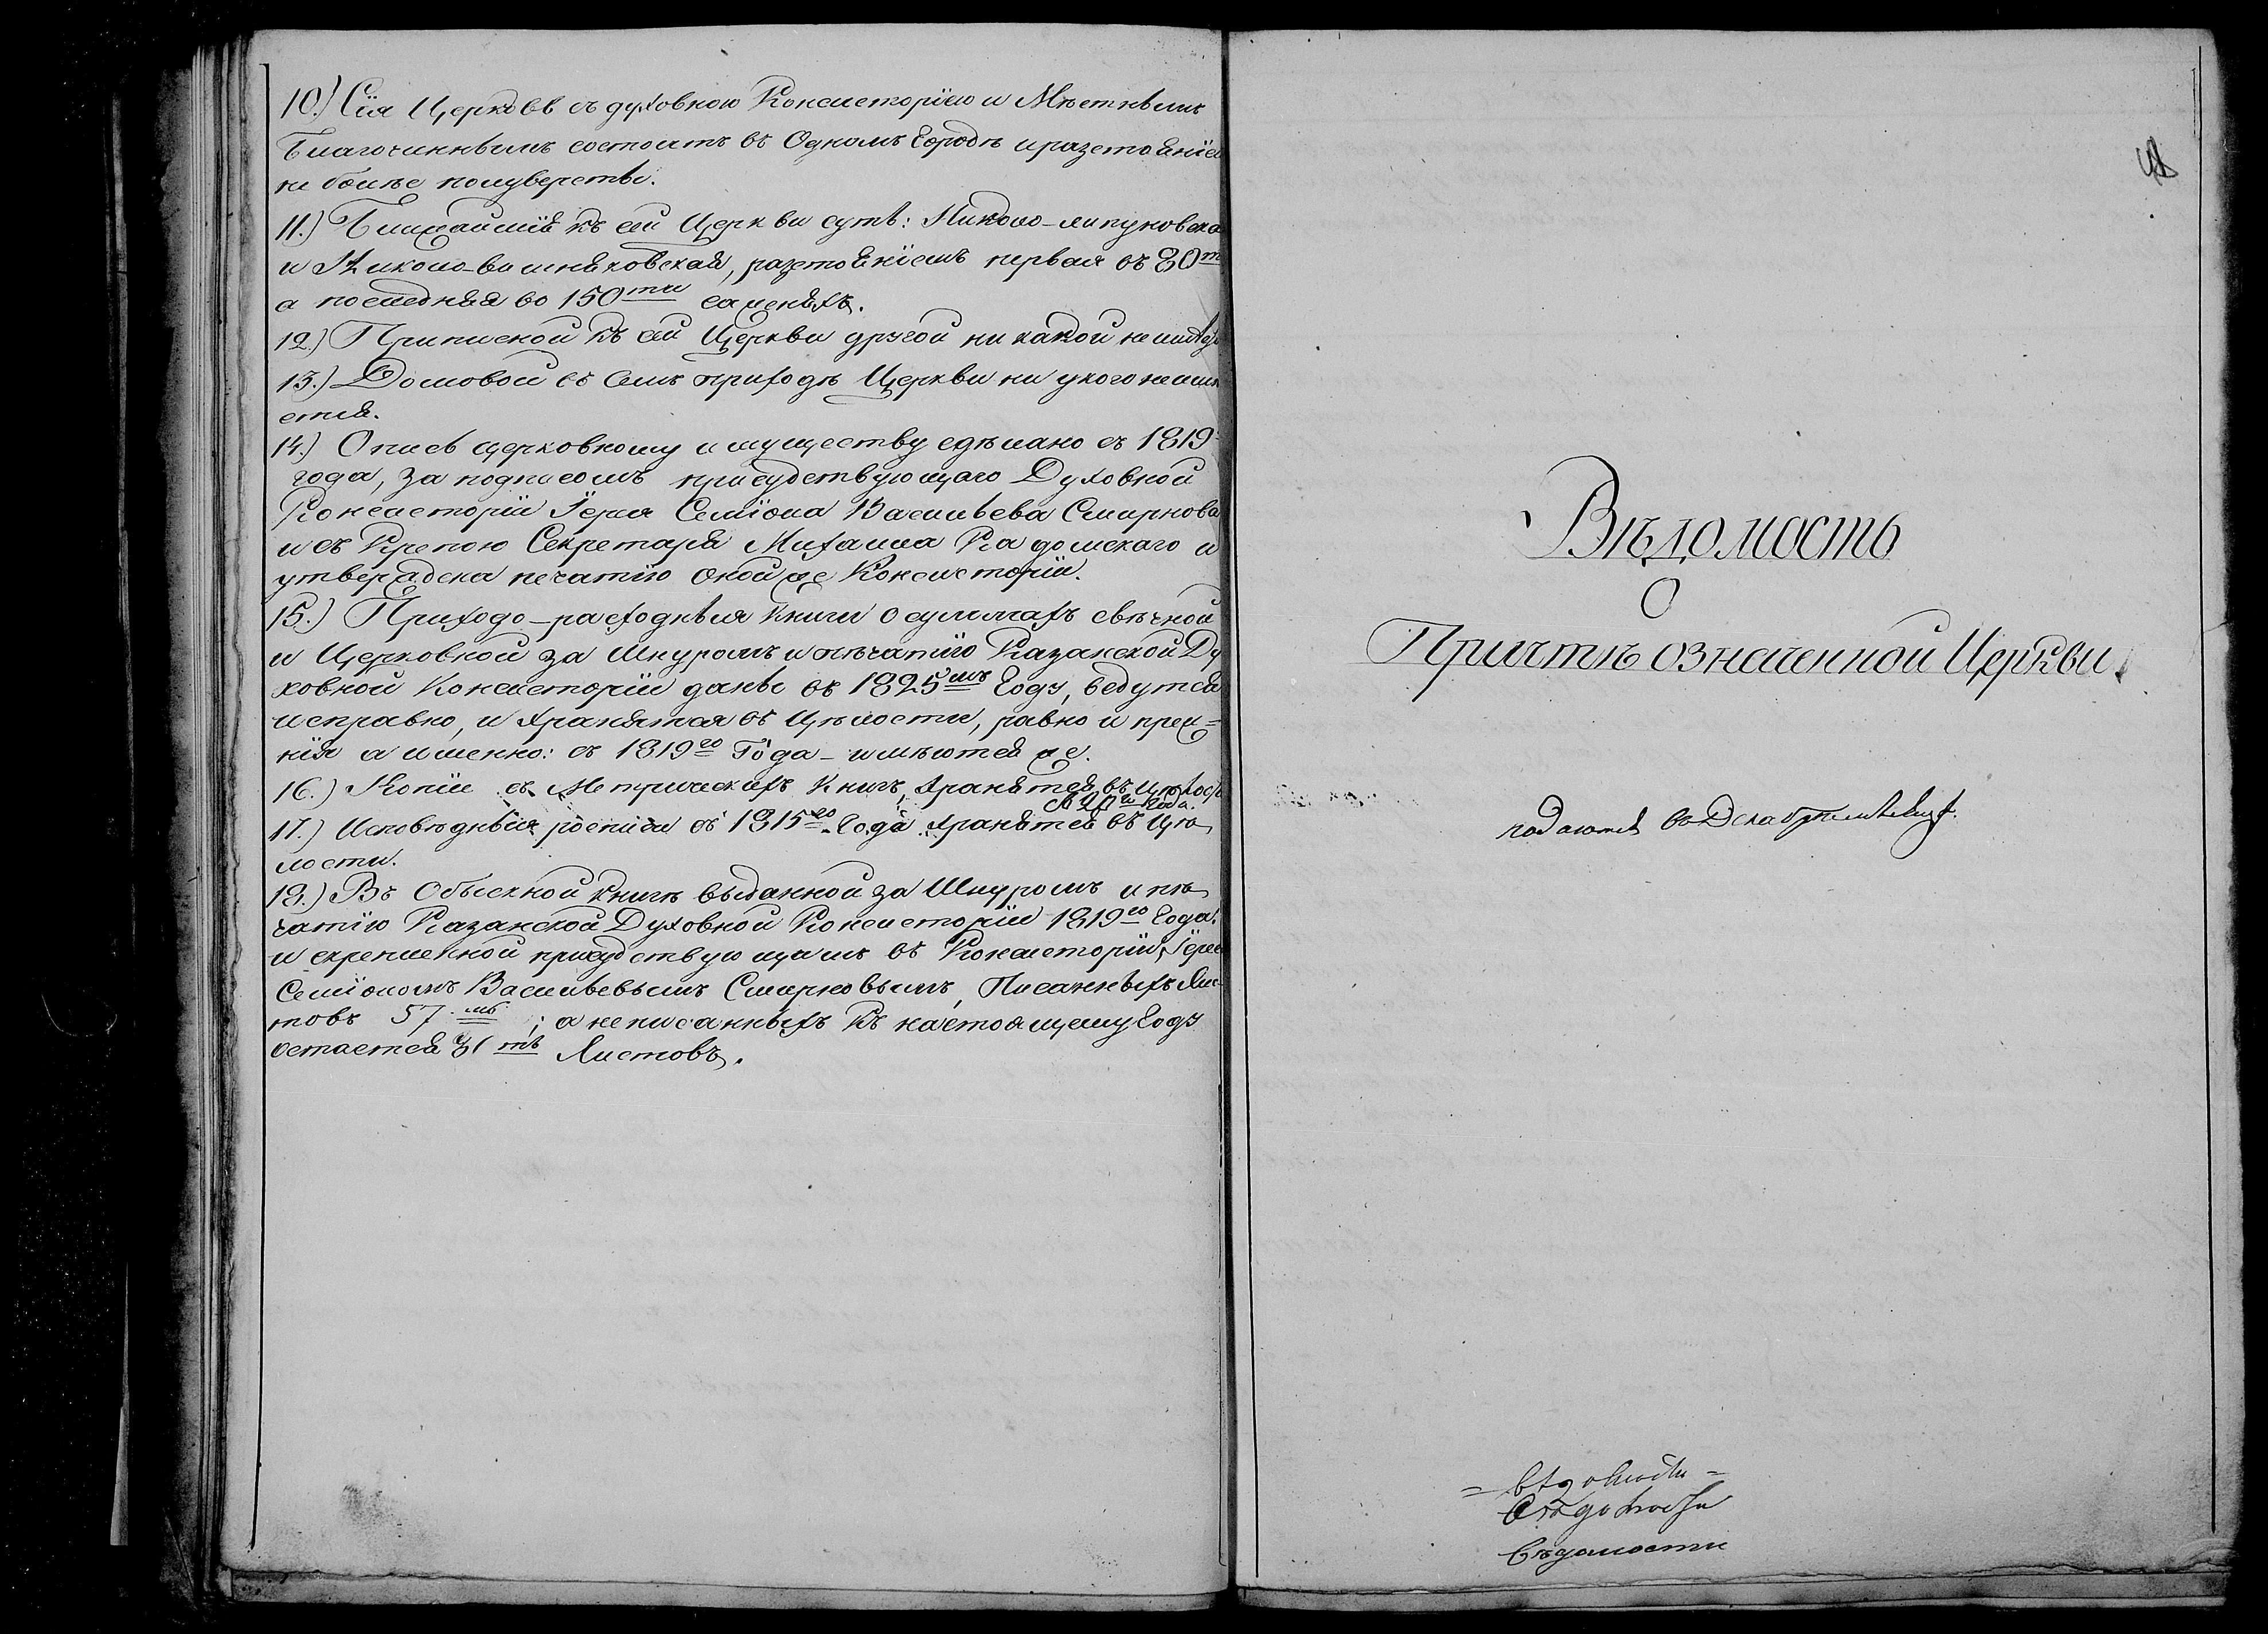 10.) Сїя Церковь съ духовною Консисторіею и Мѣстнымъ
Благочиннымъ состоитъ въ Одномъ Городѣ и разстоянїем
не болѣе полуверсты.
11.) Ближайшїя къ сей Церкви суть: Николо-ляпуновска
и Николо-вишняковская, разстоянїемъ первая въ 80ти
а последняя во 150ти саженяхъ.
12.) Приписной къ сей Церкви другой ни какой не имѣе
13.) Домовой въ Семъ приходѣ Церкви ни укого неимѣ
ется.
14.) Опись церковному имуществу сдѣлано съ 1819
года, за подписомъ присудствующаго Духовной
Консисторїи Їерея Семїона Васильева Смирнова
и съ Крепою Секретаря Михаила Радомскаго и
утверждена печатїю оной же Консисторїи.
15.) Приходо-расходныя Книги о суммахъ свѣчной
и Церковной за Шнуромъ и пѣчатїю Казанской Ду
ховной Консисторїи даны въ 1825мъ Году, ведутся
исправно, и хранятся въ Цѣлости, равно и преж=
нїя а именно: съ 1819го Года - имѣются же.
16.) Копїи съ Метрическихъ Книгъ, хранятся въ цѣлост
года.
17.) Исповѣдныя росписи съ 1815го Года хранятся въ Цѣ
лости.
18.) Въ Обыскной книгѣ выданной за Шнуромъ и пѣ
чатїю Казанской Духовной Консисторїи 1819го Года.
и скрепленной присудствующимъ въ Консисторїи, Їерее
Семїономъ Васильевымъ Смирновымъ, Писанныхъ Лис
товъ 57мъ; а неписанныхъ Къ настоящему Году
остается 31тъ Листовъ.
Вѣдомость
О
Причтѣ означенной Церкви.
подаются въ Декабрѣ
вѣдомости
Вѣдомости